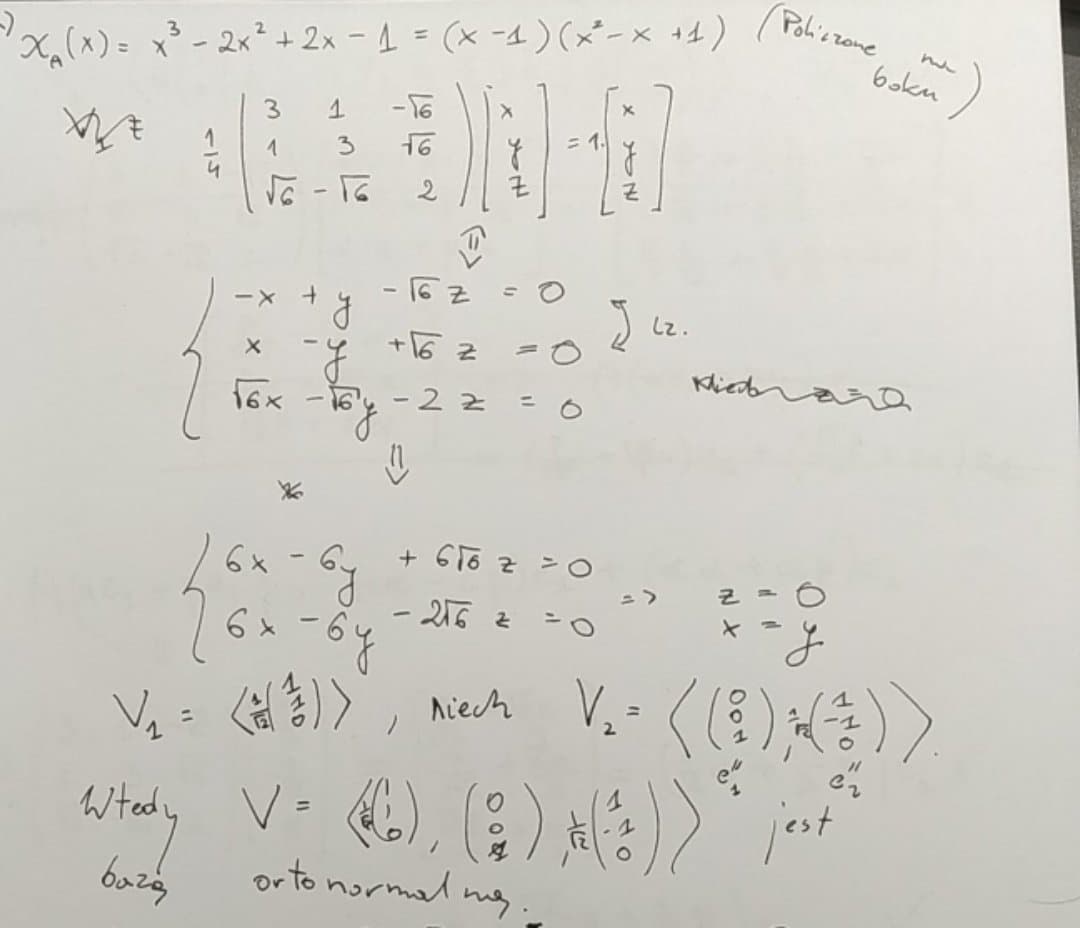 ) χ_A(x) = x³ - 2x² + 2x - 1 = (x - 1)(x² - x + 1) (Policzone na boku)
1/4 ( 3 1 -√6 ; 1 3 √6 ; √6 -√6 2 ) [ x ; y ; z ] = 1· [ x ; y ; z ]
⇓
{ -x + y - √6 z = 0
x - y + √6 z = 0 } LZ.
√6x - √6y - 2 z = 0
⇓
{ 6x - 6y + 6√6 z = 0
6x - 6y - 2√6 z = 0 => z = 0
x = y
V₁ = ⟨ 1/√2 ( 1 ; 1 ; 0 ) ⟩ , niech V₂ = ⟨ ( 0 ; 0 ; 1 ) , 1/√2 ( 1 ; -1 ; 0 ) ⟩.
e₁'' e₂''
Wtedy V = ⟨ 1/√2 ( 1 ; 1 ; 0 ) , ( 0 ; 0 ; 1 ) , 1/√2 ( 1 ; -1 ; 0 ) ⟩ jest
bazą ortonormalną.